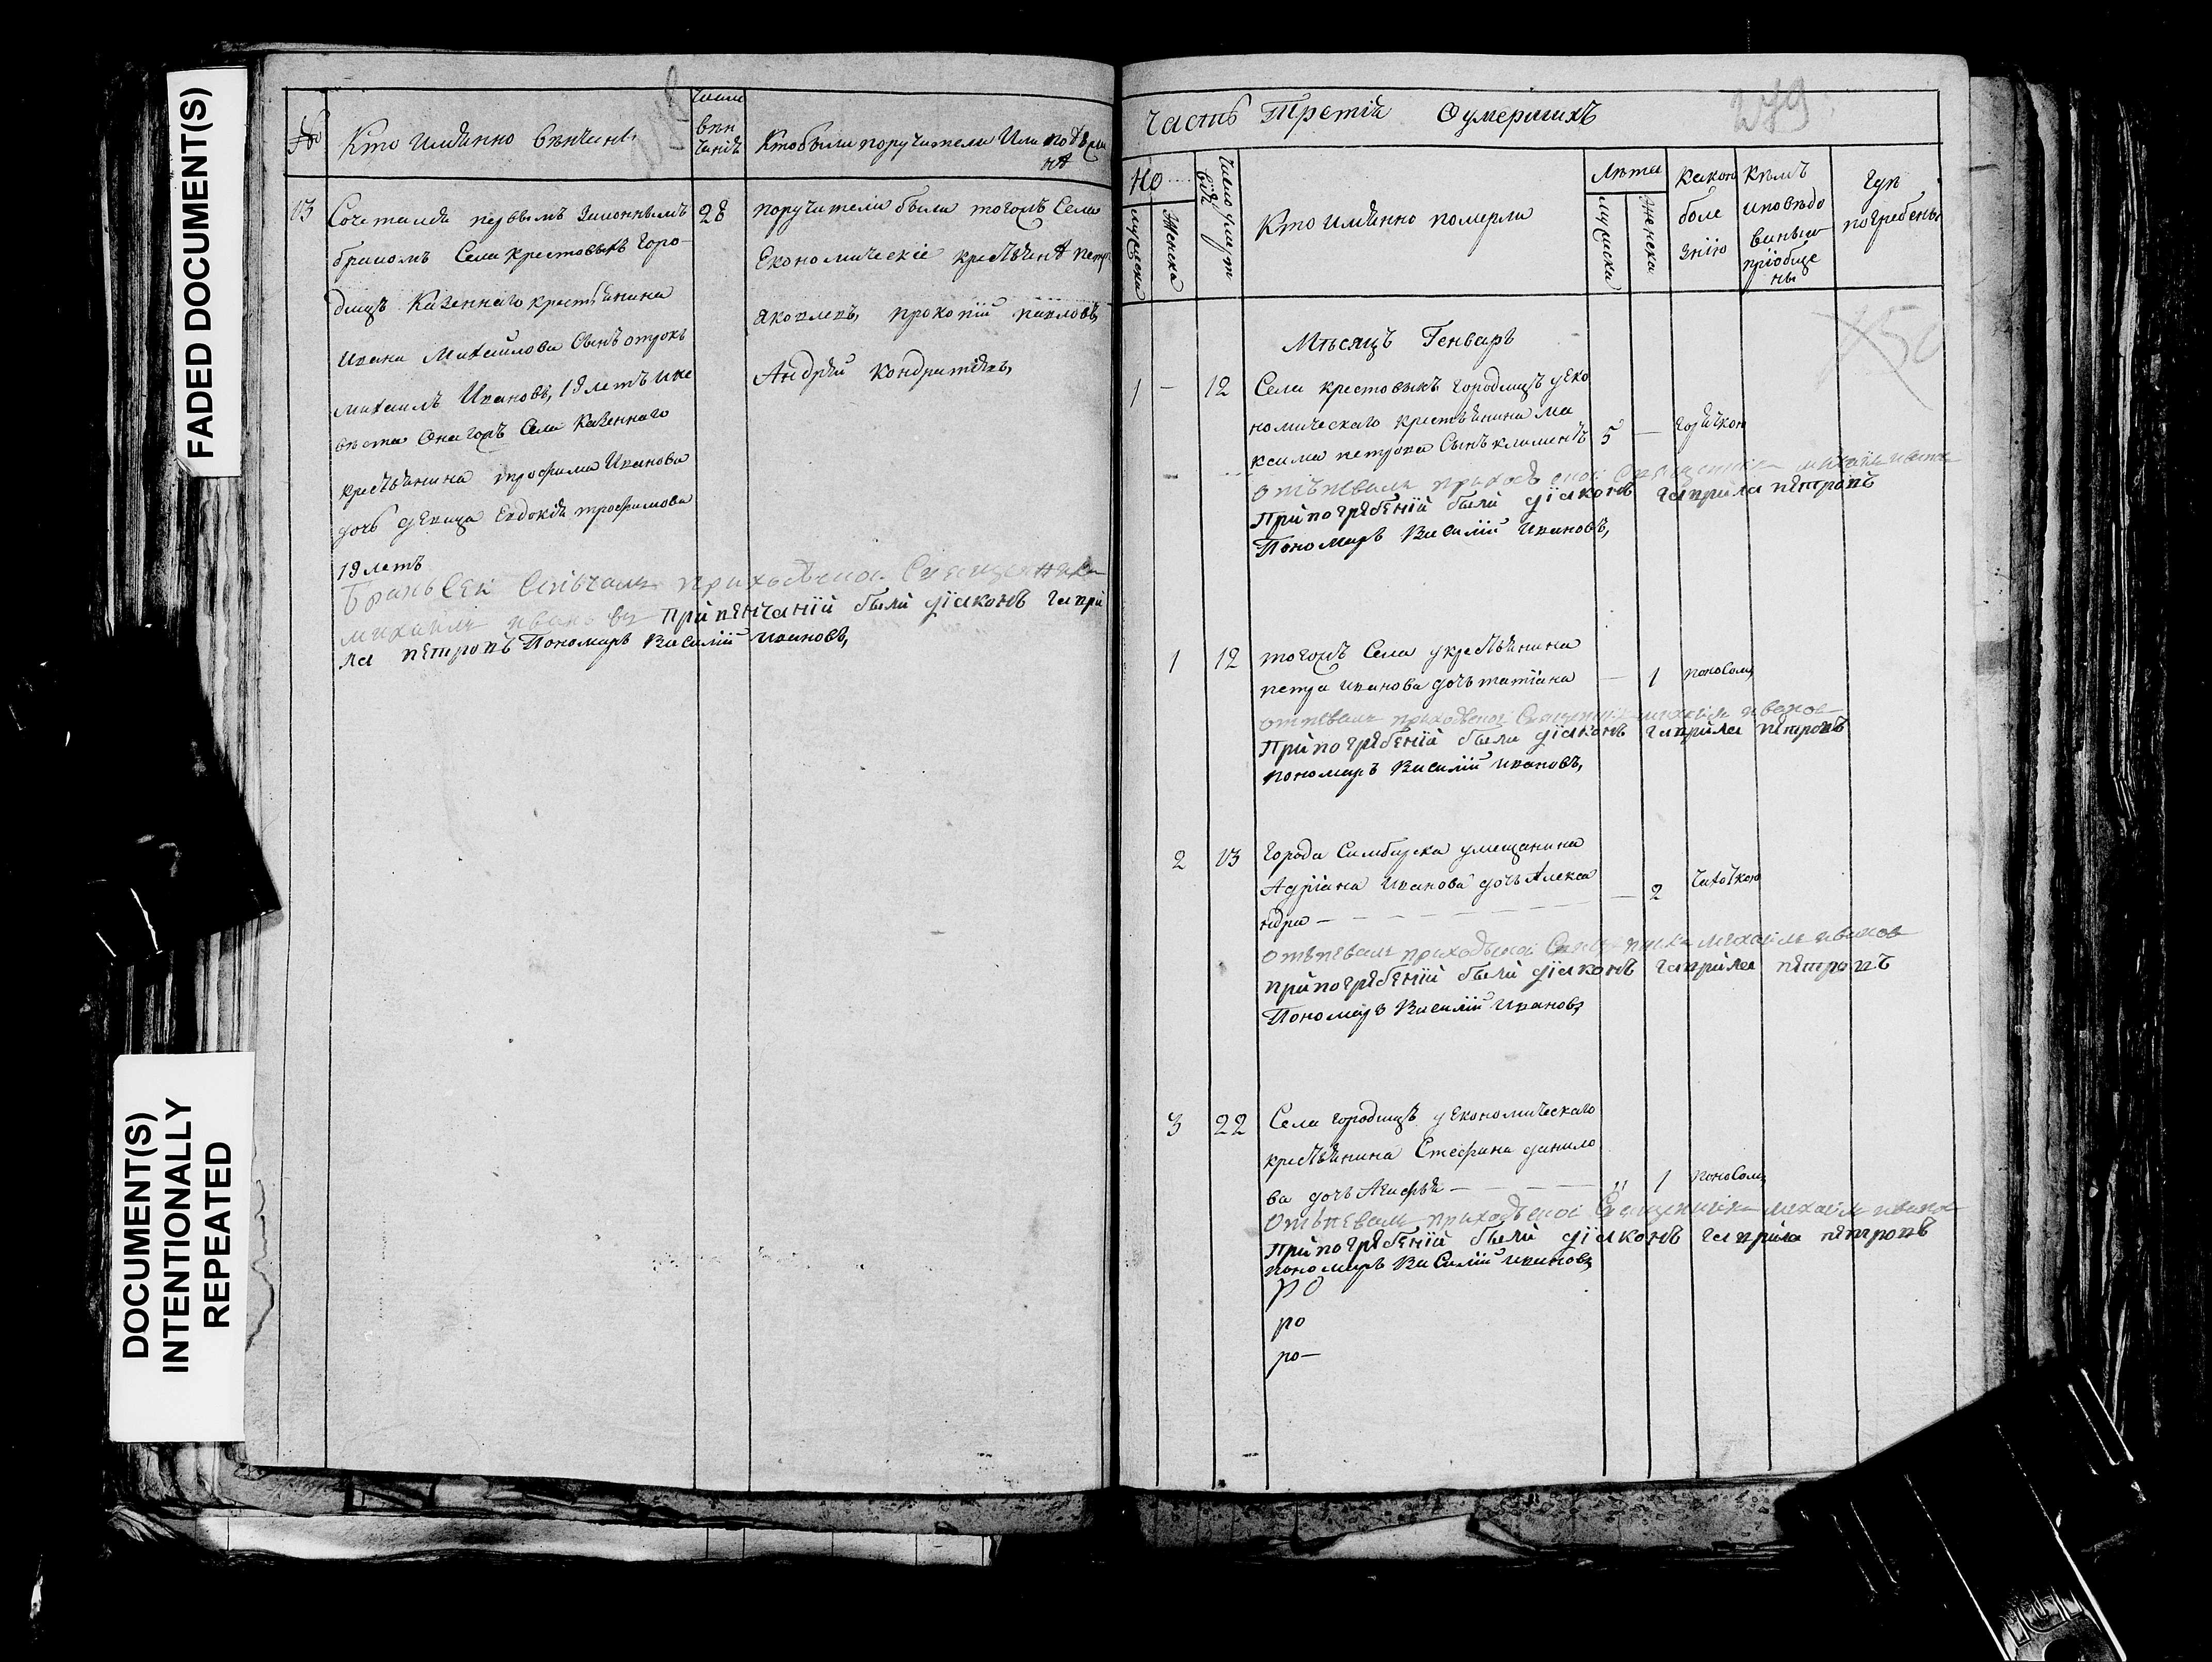 FADED DOCUMENT(S)
DOCUMENT(S)
INTENTIONALLY
REPEATED
№
Кто имянно венчаны
числа
вен
чанія
Кто были поручители или поезжа
нѣ
13
Сочетался первымъ законнымъ
28
бракомъ Села крестовыхъ Горо-
дищъ Казеннаго крестьянина
Ивана Михайлова Сынъ отрокъ
михаилъ Ивановъ, 19 летъ и не
веста Онагожъ Села Казеннаго
крестьянина трофима Иванова
дочь девица Евдокія трофимова
19 летъ
бракъ Сей венчалъ приходской Священникъ
михаилъ ивановъ При венчаніи были діаконъ гаври
ла петровъ Пономарь Василій ивановъ,
поручители были тогожъ Села
Економическіе крестьяне петр
яковлевъ, прокопій павловъ
Андрей кондратьевъ,
Часть Третія О умершихъ
279
Но
мужеска
Женска
Число умерт
вія
Кто имянно померли
Лѣта
мужеска
женска
какою
боле
знію
Кѣмъ
исповѣдо
ваны и
пріобще
ны
Гдѣ
погребены
150
Мѣсяцъ Генварь
1 — 12
Села крестовыхъ городищъ у еко
номическаго крестьянина Ма
ксима петрова Сынъ климентъ 5 — горячкою
отъпевалъ приходской Священникъ михаилъ иванов
При погребеніи были діаконъ гаврила петровъ
Пономарь Василій ивановъ,
1 12
тогожъ Села у крестьянина
петра иванова дочь татіана — 1 поносомъ
отпевалъ приходской Священникъ михаилъ иванов
При погребеніи были діаконъ гаврила петровъ
пономарь Василій ивановъ,
2 13
Города Симбирска у мещанина
Адріана иванова дочь Алекса
ндра — — 2 чахоткою
отъпевалъ приходской Священникъ михаилъ иванов
при погребеніи были діаконъ гаврила петровъ
Пономарь Василій ивановъ
3 22
Села городищъ у економическаго
крестьянина Стефана данило
ва дочь Агафья — " 1 поносомъ
Отъпевалъ приходской Священникъ михаилъ иванов
При погребеніи были діаконъ гаврила петровъ
пономарь Василій ивановъ
ро
ро
ро—